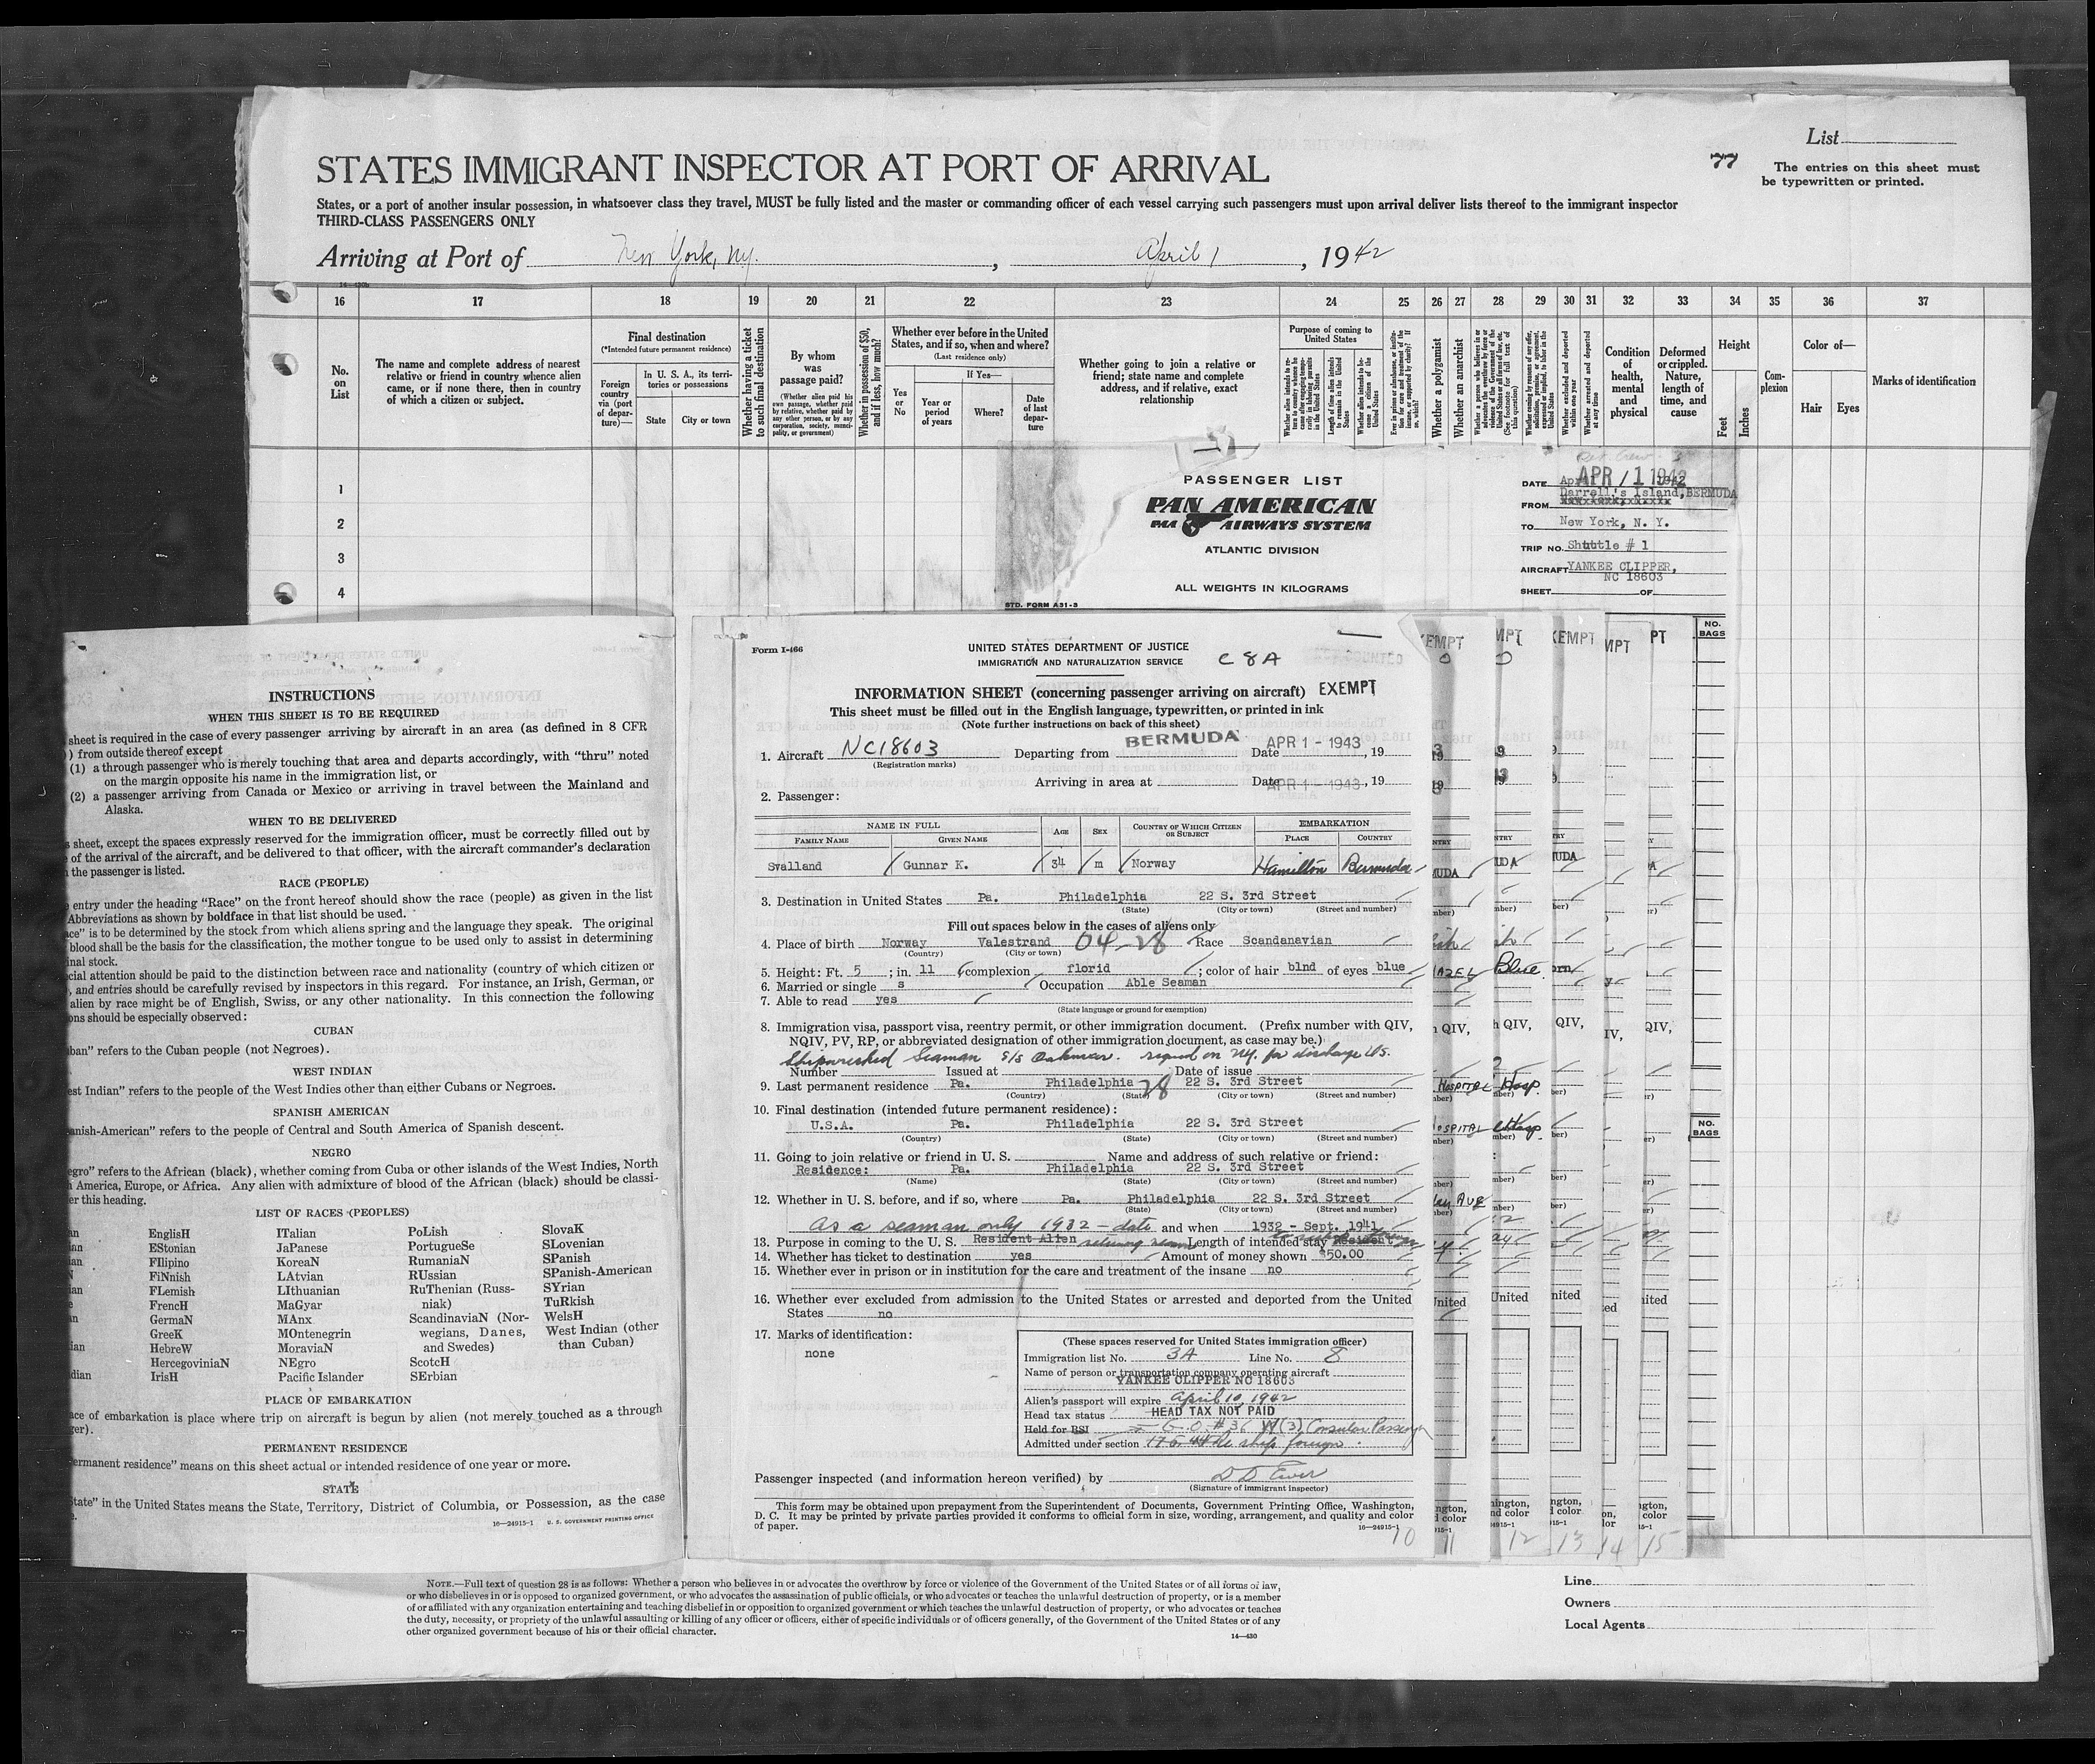 List
77
The entries on this sheet must
be typewritten or printed.
STATES IMMIGRANT INSPECTOR AT PORT OF ARRIVAL
States, or a port of another insular possession, in whatsoever class they travel, MUST be fully listed and the master or commanding officer of each vessel carrying such passengers must upon arrival deliver lists thereof to the immigrant inspector
THIRD-CLASS PASSENGERS ONLY
Arriving at Port of New York, Ny. , April 1 , 1942
16 17 18 19 20 21 22 23 24 25 26 27 28 29 30 31 32 33 34 35 36 37
No. on List
The name and complete address of nearest
relative or friend in country whence alien
came, or if none there, then in country
of which a citizen or subject.
Final destination
(*Intended future permanent residence)
Foreign country via (port of departure)—
In U. S. A., its territories or possessions
State City or town
Whether having a ticket to such final destination
By whom was passage paid?
(Whether alien paid his own passage, whether paid by relative, whether paid by any other person, or by any corporation, society, municipality, or government)
Whether in possession of $50, and if less, how much?
Whether ever before in the United
States, and if so, when and where?
(Last residence only)
Yes or No
If Yes—
Year or period of years
Where?
Date of last departure
Whether going to join a relative or
friend; state name and complete
address, and if relative, exact
relationship
Purpose of coming to
United States
Whether a polygamist
Whether an anarchist
Condition of health, mental and physical
Deformed or crippled. Nature, length of time, and cause
Height
Feet Inches
Complexion
Color of—
Hair Eyes
Marks of identification
1
2
3
4
PASSENGER LIST
PAN AMERICAN
PAA AIRWAYS SYSTEM
ATLANTIC DIVISION
ALL WEIGHTS IN KILOGRAMS
STD. FORM A31-3
DATE APR / 1 1942
FROM Darrell's Island, BERMUDA
TO New York, N. Y.
TRIP NO. Shuttle # 1
AIRCRAFT YANKEE CLIPPER,
NC 18603
SHEET OF
NO. BAGS
INSTRUCTIONS
WHEN THIS SHEET IS TO BE REQUIRED
sheet is required in the case of every passenger arriving by aircraft in an area (as defined in 8 CFR
) from outside thereof except
(1) a through passenger who is merely touching that area and departs accordingly, with "thru" noted
on the margin opposite his name in the immigration list, or
(2) a passenger arriving from Canada or Mexico or arriving in travel between the Mainland and
Alaska.
WHEN TO BE DELIVERED
sheet, except the spaces expressly reserved for the immigration officer, must be correctly filled out by
of the arrival of the aircraft, and be delivered to that officer, with the aircraft commander's declaration
the passenger is listed.
RACE (PEOPLE)
entry under the heading "Race" on the front hereof should show the race (people) as given in the list
Abbreviations as shown by boldface in that list should be used.
ce" is to be determined by the stock from which aliens spring and the language they speak. The original
blood shall be the basis for the classification, the mother tongue to be used only to assist in determining
inal stock.
cial attention should be paid to the distinction between race and nationality (country of which citizen or
, and entries should be carefully revised by inspectors in this regard. For instance, an Irish, German, or
alien by race might be of English, Swiss, or any other nationality. In this connection the following
ons should be especially observed:
CUBAN
ban" refers to the Cuban people (not Negroes).
WEST INDIAN
est Indian" refers to the people of the West Indies other than either Cubans or Negroes.
SPANISH AMERICAN
anish-American" refers to the people of Central and South America of Spanish descent.
NEGRO
egro" refers to the African (black), whether coming from Cuba or other islands of the West Indies, North
America, Europe, or Africa. Any alien with admixture of blood of the African (black) should be classi-
er this heading.
LIST OF RACES (PEOPLES)
EnglisH ITalian PoLish SlovaK
EStonian JaPanese PortugueSe SLovenian
FIlipino KoreaN RumaniaN SPanish
FiNnish LAtvian RUssian SPanish-American
FLemish LIthuanian RuThenian (Russ- SYrian
FrencH MaGyar niak) TuRkish
GermaN MAnx ScandinaviaN (Nor- WelsH
GreeK MOntenegrin wegians, Danes, West Indian (other
HebreW MoraviaN and Swedes) than Cuban)
HercegoviniaN NEgro ScotcH
IrisH Pacific Islander SErbian
PLACE OF EMBARKATION
ace of embarkation is place where trip on aircraft is begun by alien (not merely touched as a through
ger).
PERMANENT RESIDENCE
ermanent residence" means on this sheet actual or intended residence of one year or more.
STATE
State" in the United States means the State, Territory, District of Columbia, or Possession, as the case
16—24915-1 U. S. GOVERNMENT PRINTING OFFICE
Form I-466
UNITED STATES DEPARTMENT OF JUSTICE
IMMIGRATION AND NATURALIZATION SERVICE C 8 A
INFORMATION SHEET (concerning passenger arriving on aircraft) EXEMPT
This sheet must be filled out in the English language, typewritten, or printed in ink
(Note further instructions on back of this sheet)
1. Aircraft NC18603 Departing from BERMUDA Date APR 1 - 1943, 19
(Registration marks)
Arriving in area at Date APR 1 - 1943, 19
2. Passenger:
NAME IN FULL AGE SEX COUNTRY OF WHICH CITIZEN OR SUBJECT EMBARKATION
FAMILY NAME GIVEN NAME PLACE COUNTRY
Svalland Gunnar K. 34 m Norway Hamilton Bermuda
3. Destination in United States Pa. Philadelphia 22 S. 3rd Street
(State) (City or town) (Street and number)
Fill out spaces below in the cases of aliens only
4. Place of birth Norway Valestrand 04-28 Race Scandanavian
(Country) (City or town)
5. Height: Ft. 5 ; in. 11 complexion florid ; color of hair blnd of eyes blue
6. Married or single s Occupation Able Seaman
7. Able to read yes
(State language or ground for exemption)
8. Immigration visa, passport visa, reentry permit, or other immigration document. (Prefix number with QIV,
NQIV, PV, RP, or abbreviated designation of other immigration document, as case may be.)
Shipwrecked Seaman S/S Oakmar. signed on NY. for discharge US.
Number Issued at Date of issue
9. Last permanent residence Pa. Philadelphia 28 22 S. 3rd Street
(Country) (State) (City or town) (Street and number)
10. Final destination (intended future permanent residence):
U.S.A. Pa. Philadelphia 22 S. 3rd Street
(Country) (State) (City or town) (Street and number)
11. Going to join relative or friend in U. S. Name and address of such relative or friend:
Residence: Pa. Philadelphia 22 S. 3rd Street
(Name) (State) (City or town) (Street and number)
12. Whether in U. S. before, and if so, where Pa. Philadelphia 22 S. 3rd Street
(State) (City or town) (Street and number)
As a seaman only 1932 - date and when 1932 - Sept. 1941
13. Purpose in coming to the U. S. Resident Alien Length of intended stay Resident
14. Whether has ticket to destination yes Amount of money shown $50.00
15. Whether ever in prison or in institution for the care and treatment of the insane no
16. Whether ever excluded from admission to the United States or arrested and deported from the United
States no
17. Marks of identification:
none
(These spaces reserved for United States immigration officer)
Immigration list No. 3A Line No. 8
Name of person or transportation company operating aircraft
YANKEE CLIPPER NC 18603
Alien's passport will expire April 10, 1942
Head tax status HEAD TAX NOT PAID
Held for BSI
Admitted under section
Passenger inspected (and information hereon verified) by
(Signature of immigrant inspector)
This form may be obtained upon prepayment from the Superintendent of Documents, Government Printing Office, Washington,
D. C. It may be printed by private parties provided it conforms to official form in size, wording, arrangement, and quality and color
of paper.
16—24915-1
10 11 12 13 14 15
NOTE.—Full text of question 28 is as follows: Whether a person who believes in or advocates the overthrow by force or violence of the Government of the United States or of all forms of law,
or who disbelieves in or is opposed to organized government, or who advocates the assassination of public officials, or who advocates or teaches the unlawful destruction of property, or is a member
of or affiliated with any organization entertaining and teaching disbelief in or opposition to organized government or which teaches the unlawful destruction of property, or who advocates or teaches
the duty, necessity, or propriety of the unlawful assaulting or killing of any officer or officers, either of specific individuals or of officers generally, of the Government of the United States or of any
other organized government because of his or their official character.
14—430
Line
Owners
Local Agents